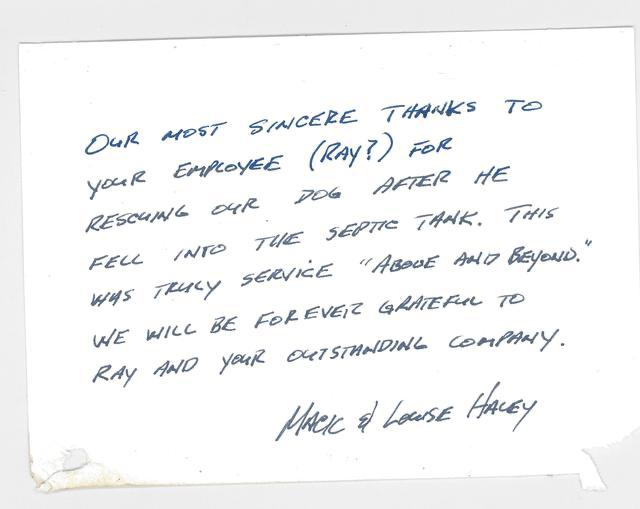 OUR MOST SINCERE THANKS TO
YOUR EMPLOYEE (RAY?) FOR
RESCUING OUR DOG AFTER HE
FELL INTO THE SEPTIC TANK. THIS
WAS TRULY SERVICE "ABOVE AND BEYOND."
WE WILL BE FOREVER GRATEFUL TO
RAY AND YOUR OUTSTANDING COMPANY.
MACK & LOUISE HALEY